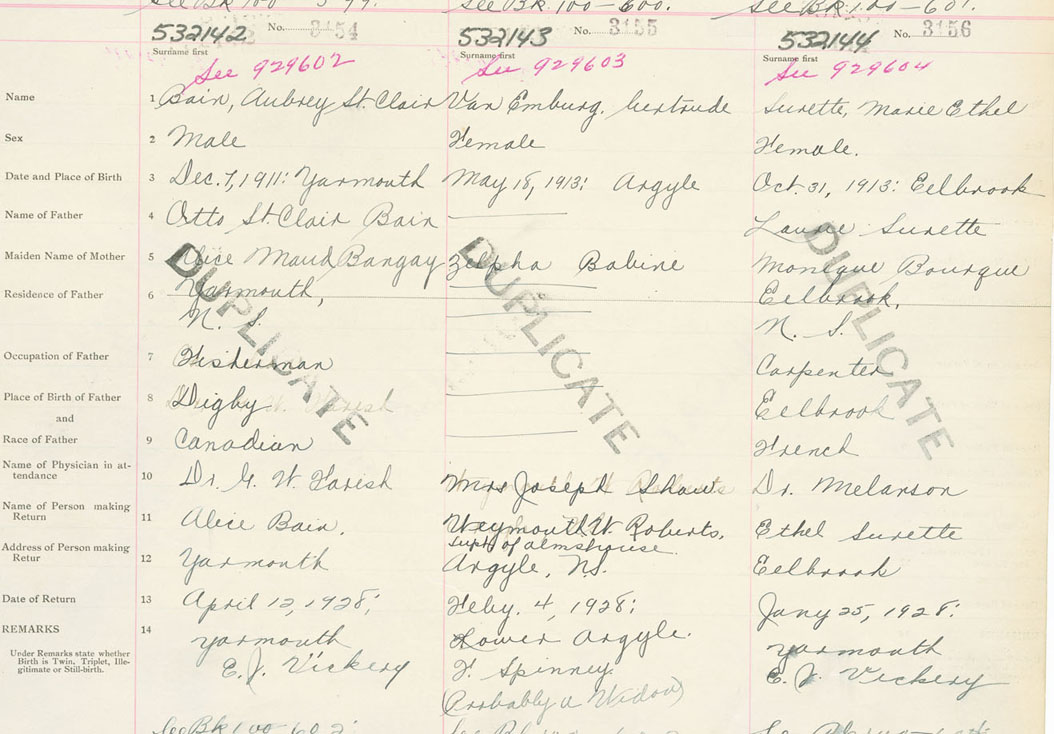 See Bk 100 - 599.
See Bk. 100 - 600.
See Bk. 100 - 601.
532142 No. 3154
532143 No. 3155
532144 No. 3156
Surname first
Surname first
Surname first
See 929602
See 929603
See 929604
Name 1 Bain, Aubrey St. Clair
Van Emburg, Gertrude
Surette, Marie Ethel
Sex 2 Male
Female
Female.
Date and Place of Birth 3 Dec. 7, 1911: Yarmouth
May 18, 1913: Argyle
Oct. 31, 1913: Eelbrook
Name of Father 4 Otto St. Clair Bain
Surette
Maiden Name of Mother 5 Alice Maud Bangay
Zelpha Babine
Monique Bourque
Residence of Father 6 Yarmouth,
N. S.
Eelbrook,
N. S.
Occupation of Father 7 Fisherman
Carpenter
Place of Birth of Father 8 Digby
and
Eelbrook
Race of Father 9 Canadian
French
Name of Physician in at-
tendance 10 Dr. G. W. Farish
Mrs Joseph Shaw
Dr. Melanson
Name of Person making
Return 11 Alice Bain.
Weymouth W. Roberts,
Supt. of almshouse
Ethel Surette
Address of Person making
Retur 12 Yarmouth
Argyle, N.S.
Eelbrook
Date of Return 13 April 12, 1928;
Feby. 4, 1928;
Jany 25, 1928:
REMARKS 14
Under Remarks state whether
Birth is Twin, Triplet, Ille-
gitimate or Still-birth.
Yarmouth
E. J. Vickery
Lower Argyle.
F. Spinney.
(Probably a Widow)
Yarmouth
E. J. Vickery
DUPLICATE
DUPLICATE
DUPLICATE
See Bk 100 - 602